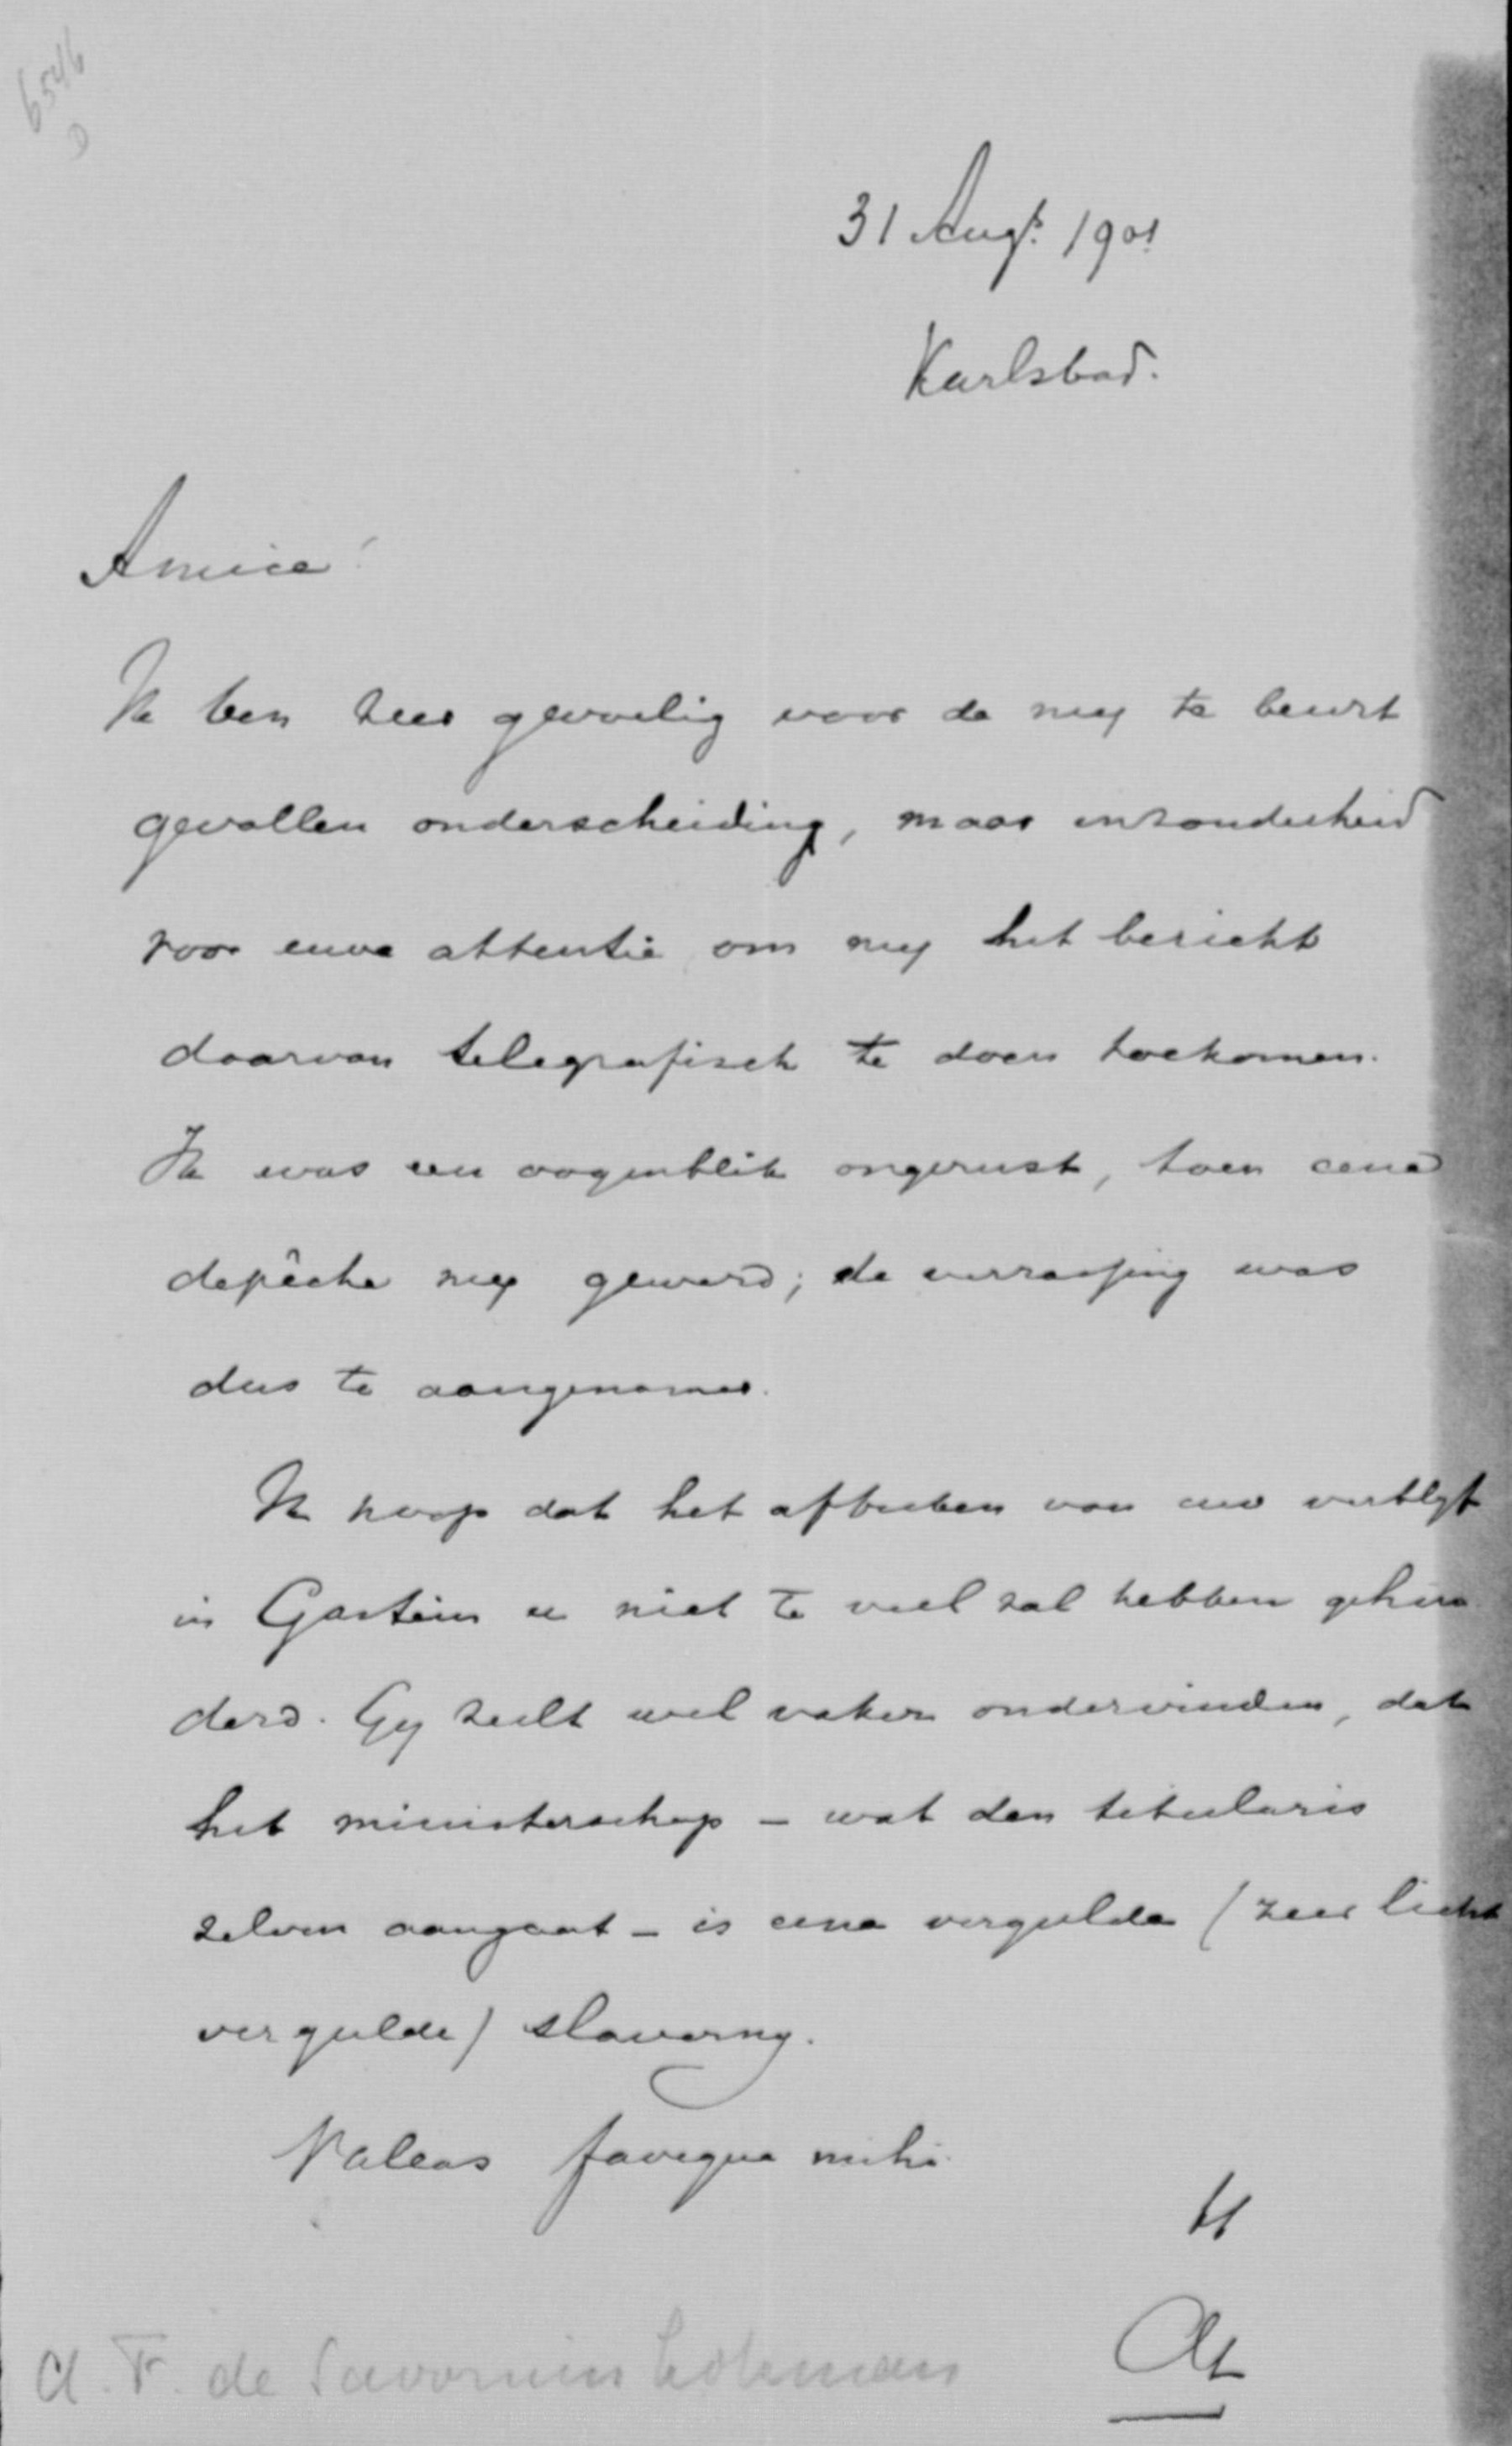 6546
D
31 Augt. 1901
Karlsbad.
Amice!
Ik ben zeer gevoelig voor de my te beurt
gevallen onderscheiding, maar inzonderheid
voor uwe attentie om my het bericht
daarvan telegrafisch te doen toekomen.
Ik was een oogenblik ongerust, toen eene
depêche my gewerd; de verrassing was
dus te aangenamer.
Ik hoop dat het afbreken van uw verblyf
in Gastein u niet te veel zal hebben gehin
derd. Gy zult wel vaker ondervinden, dat
het ministerschap – wat den titularis
zelven aangaat – is eene vergulde (zeer licht
vergulde) slaverny.
Valeas faveque mihi.
tt
A. F. de Savornin Lohman